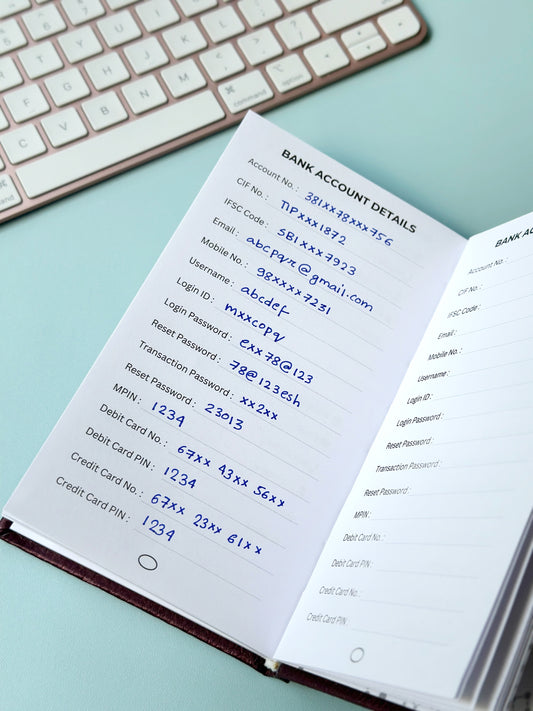 ~
!
6
7
8
9
0
T
Y
U
I
O
P
F
G
H
J
K
L
C
V
B
N
M
<
,
>
.
?
/
⌘
command
⌥
option
BANK ACCOUNT DETAILS
Account No. : 381xx78xxx756
CIF No. : TIPxxx1872
IFSC Code : SBIxxx7923
Email : abcpqr@gmail.com
Mobile No. : 98xxxx7231
Username : abcdef
Login ID : mxxcopq
Login Password : exx78@123
Reset Password : 78@123esh
Transaction Password : xx2xx
Reset Password : 23013
MPIN : 1234
Debit Card No. : 67xx 43xx 56xx
Debit Card PIN : 1234
Credit Card No. : 67xx 23xx 61xx
Credit Card PIN : 1234
BANK AC
Account No. :
CIF No. :
IFSC Code :
Email :
Mobile No. :
Username :
Login ID :
Login Password :
Reset Password :
Transaction Password :
Reset Password :
MPIN :
Debit Card No. :
Debit Card PIN :
Credit Card No. :
Credit Card PIN :